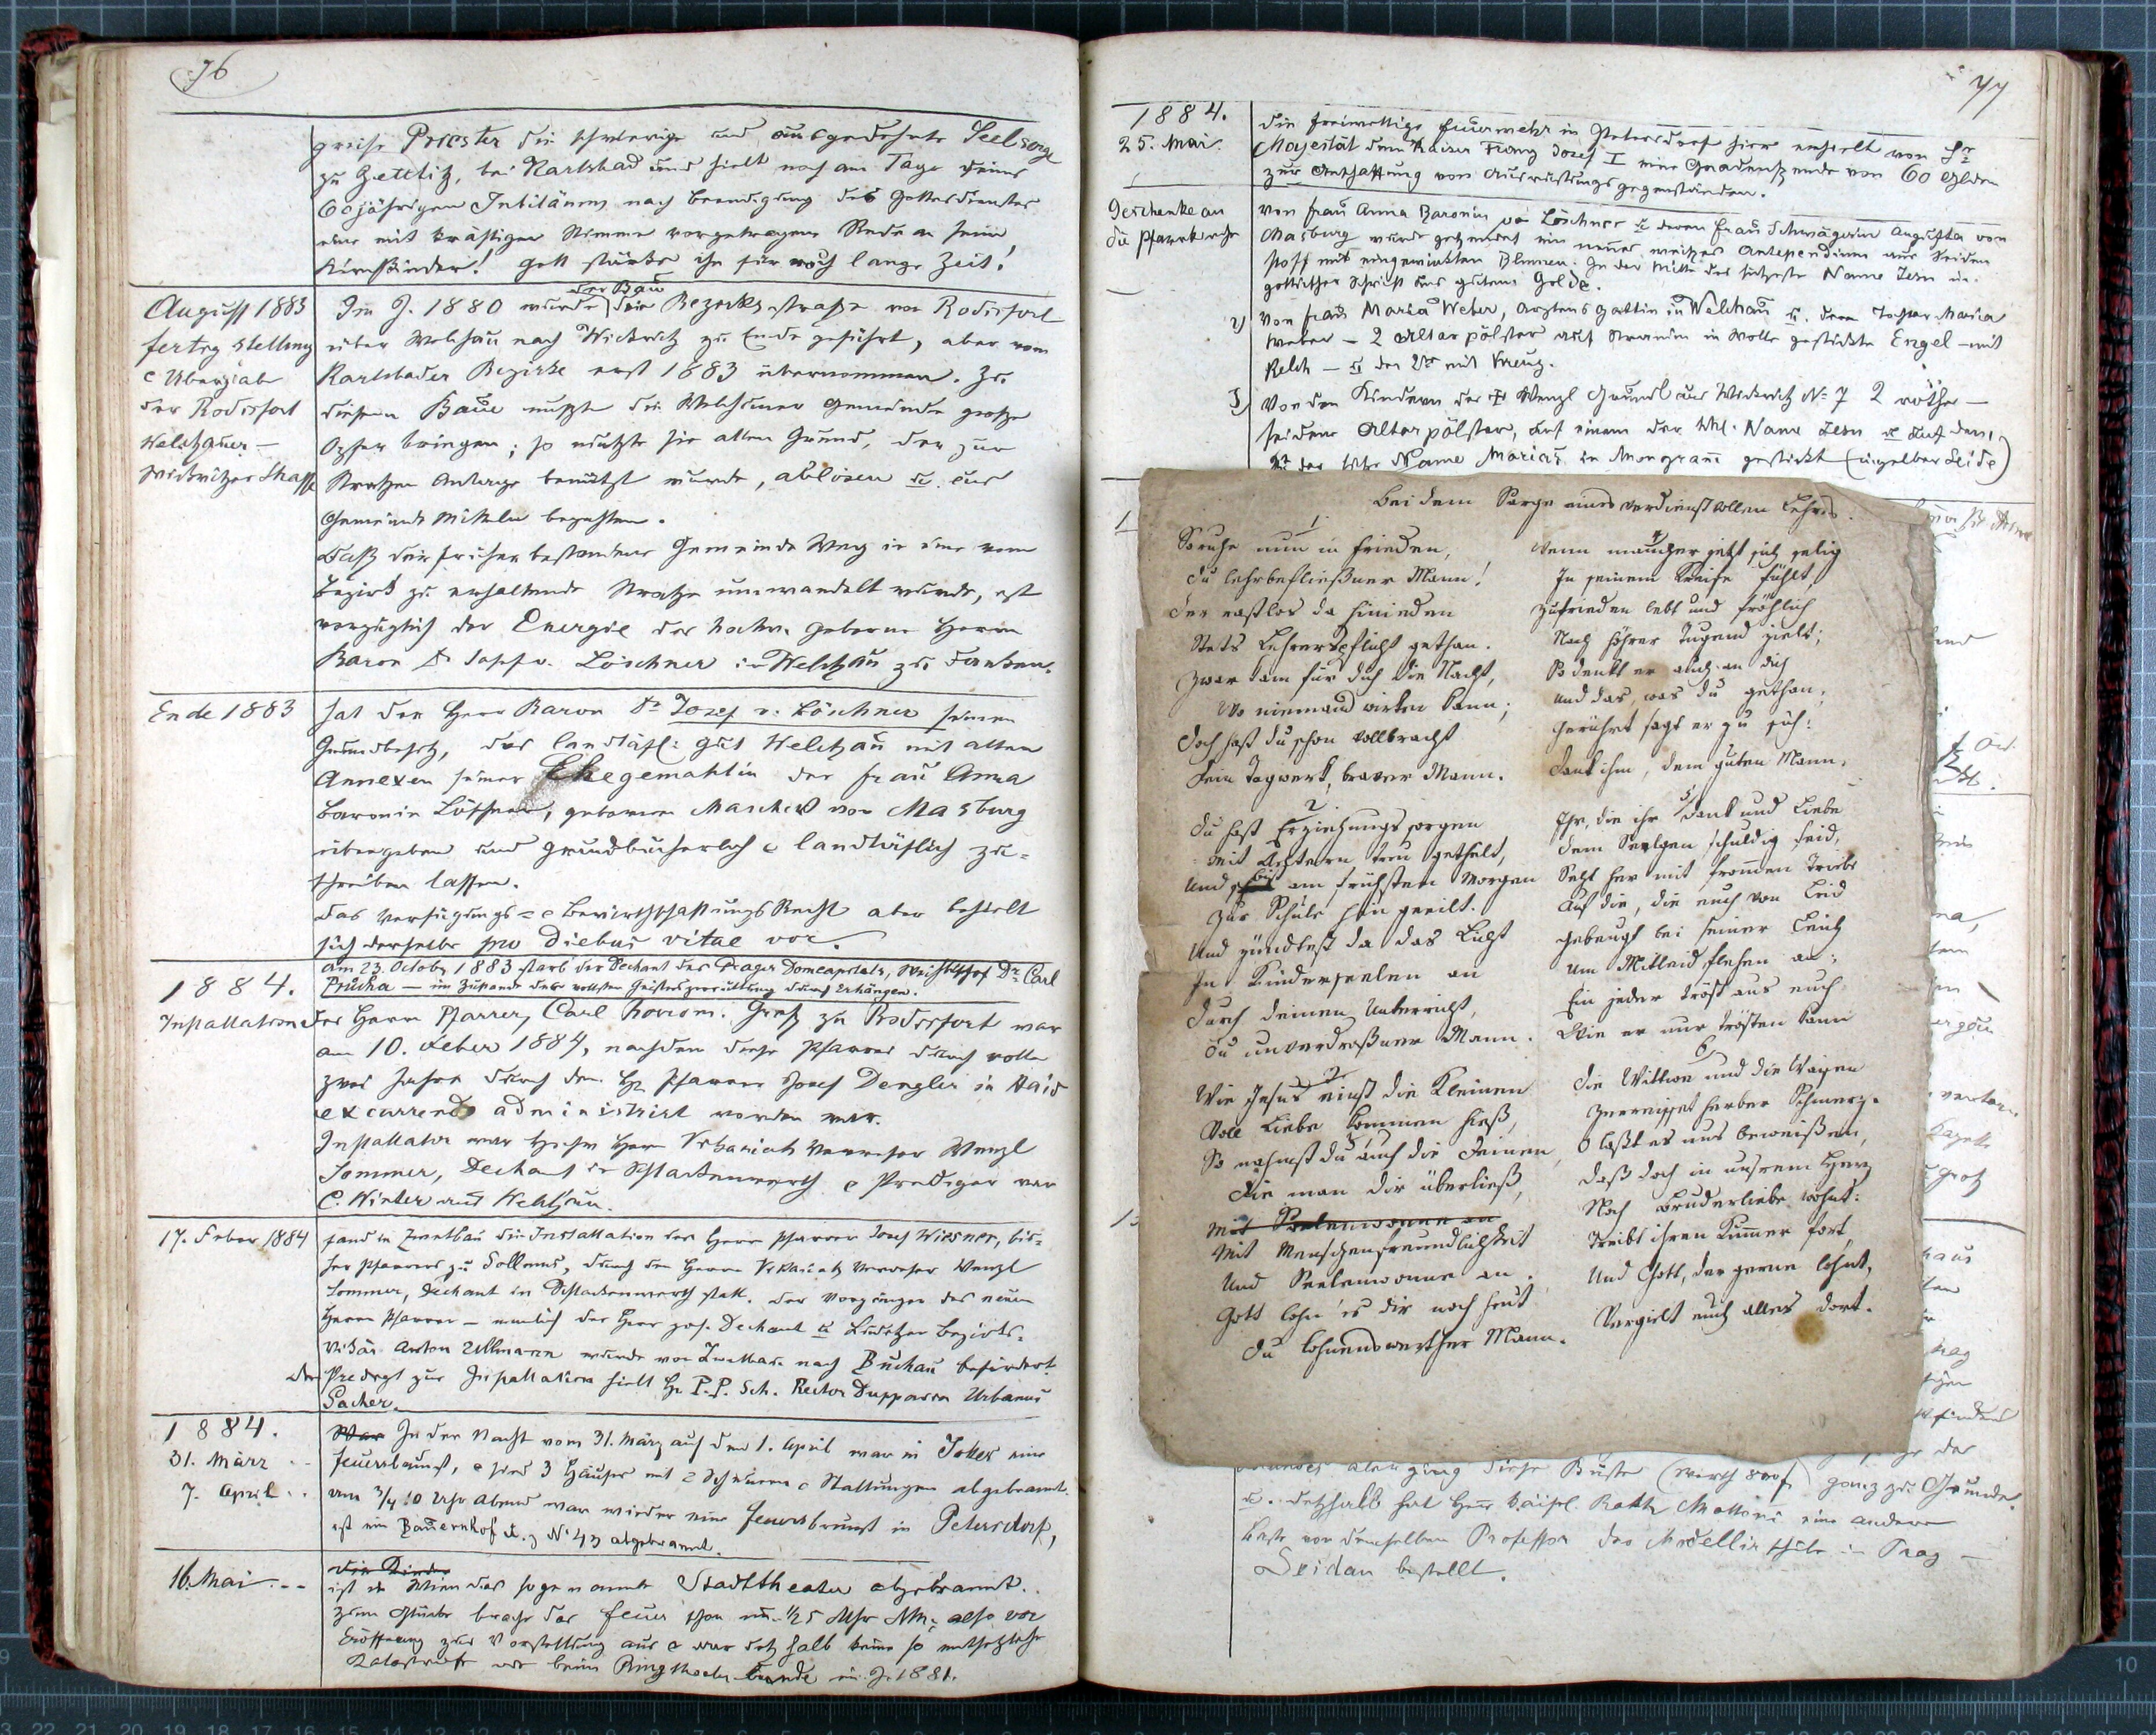 76
greise Priester die schwierige und ausgedehnte Seelsorge
zu Zettlitz, bei Karlsbad und hielt noch am Tage seines
60jährigen Jubiläums nach Beendigung des Gottesdienstes
eine mit kräftiger Stimme vorgetragene Rede an seine
Kirchkinder! Gott stärke ihn für noch lange Zeit!
August 1883
fertig Stellung
e Übergabe
der Rodisfort
Welchauer -
Wickwitzer Strasse
der Bau
Im J. 1880 wurde die Bezirksstraße von Rodisfort
über Welchau nach Wickwitz zu Ende geführt, aber vom
Karlsbader Bezirke erst 1883 übernommen. Zu
diesem Baue mußte die Welchauer Gemeinde große
Opfer bringen; so mußte sie allen Grund, der zur
Straßen Anlage benützt wurde, ablösen u. aus
Gemeinde Mitteln bezahlen.
Daß der früher bestandene Gemeinde Weg in eine vom
Bezirk zu erhaltende Straße umwandelt wurde, ist
vorzüglich der Energie des hochw. geborne Herrn
Baron Dr Josef v. Löschner in Welchau zu danken.
Ende 1883
hat der Herr Baron Dr Josef v. Löschner seinen
Grundbesitz, das landtäfl: Gut Welchau mit allen
Annexen seiner Ehegemahlin der Frau Anna
Baronin Löschner, gebornen Maschek von Masburg
übergeben und grundbücherlich e landtäflich zu=
schreiben lassen.
Das Verfügungs= e Bewirthschaftungs Recht aber behielt
sich derselbe pro diebus vitae vor.
am 23. Octobr 1883 starb der Dechant des Prager Domcapitels, Weihbischof Dr Carl
Průcha — im Zustande der vollsten Geisteszerrüttung durch Erhängen.
1884.
Installation des Herrn Pfarrers Carl Borrom. Groß zu Rodisfort war
am 10. Feber 1884, nachdem diese Pfarrei durch volle
zwei Jahre durch den H. Pfarrer Josef Dengler in Haid
excurrendo administrirt worden war.
Installator war Hochw Herr Vikariats Verweser Wenzl
Sommer, Dechant in Schlackenwerth e Prediger war
C. Winter aus Welchau.
17. Feber 1884
fand in Zwetbau die Installation des Herrn Pfarrer Josef Wiesner, bis=
her Pfarrers zu Sollmus, durch den Herrn Vikariats Verweser Wenzl
Sommer, Dechant in Schlackenwerth statt. Der Vorgänger des neuen
Herrn Pfarrer — nemlich der Herr Dechant u Luditzer Bezirks=
Vikär Anton Ullmann wurde von Zwetbau nach Buchau befördert.
Die Predigt zur Installation hielt H. P.P. Sch. Rector Duppauer Urbanus
Sacher.
1884.
31. März
7. April
War In der Nacht vom 31. März auf den 1. April war in Jokes eine
Feuersbrunst, e sind 3 Häuser mit 2 Scheuern e Stallungen abgebrannt.
um 3/4 10 Uhr Abend war wieder eine Feuersbrunst in Petersdorf,
ist ein Bauernhof N. 43 abgebrannt.
16. Mai
ist in Wien das sogenannte Stadttheater abgebrannt.
Zum Glücke brach das Feuer schon um 1/2 5 Uhr NM; also vor
Eröffnung zur Vorstellung aus e war deßhalb keine so entsetzliche
Katastrofe wie beim Ringtheaterbrande im J. 1881.
77
1884.
25. Mai
Die freiwillige Feuerwehr in Petersdorf hier erhielt von Sr
Majestät dem Kaiser Franz Josef I eine Gnadenspende von 60 Gulden
zur Anschaffung von Ausrüstungsgegenständen.
Geschenke an
die Pfarrkirche
Von Frau Anna Baronin von Löschner u deren Frau Schwägerin Augusta von
Masburg wurde gespendet ein neues weißes Antependium aus Seiden
stoff mit eingewirkten Blumen. In der Mitte der süßeste Name Jesu in
gothischer Schrift aus gutem Golde.
2) Von Frau Maria Weber, Arztens Gattin in Welchau u. deren Tochter Maria
Weber — 2 Altarpölster auf Stramin in Wolle gestickte Engel — mit
Kelch — u der 2te mit Kreuz.
3) Von den Kindern des † Wenzl Grund aus Wickwitz No 7 2 rothe —
seidene Altarpölster, auf einem der hhl. Name Jesu u auf dem
2t der hhe Name Mariens in Monogram gestickt (in gelber Seide)
Bei dem Sarge eines verdienstvollen Lehrers.
1.
So ruhe nun in Frieden,
Du lehrbefließner Mann!
Der rastlos da hinieden
Stets Lehrerspflicht gethan.
Zwar kam für dich die Nacht,
Wo niemand wirken kann;
Doch hast du schon vollbracht
Dein Tagwerk, braver Mann.
2
Du hast Erziehungssorgen
Mit Aeltern treu getheilt,
Und bist am frühsten Morgen
Zur Schule hin geeilt.
Und zündtest da das Licht
In Kinderseelen an
Durch deinen Unterricht,
Du unverdroßner Mann.
3
Wie Jesus einst die Kleinen
Voll Liebe kommen hieß,
So nahmst du auch die Deinen,
Die man dir überließ,
Mit Seelenwonne an
Mit Menschenfreundlichkeit
Und Seelenwonne an.
Gott lohn' es dir noch heut
Du lohnenswerther Mann.
4
Wenn mancher jetzt sich selig
In seinem Kreise fühlt,
Zufrieden lebt und fröhlich
Nach höhrer Tugend zielt;
So denkt er auch an dich
Und das, was du gethan,
Gerührt sagt er zu sich:
Dank ihm, dem guten Mann.
5
Ihr, die ihr Dank und Liebe
Dem Seeligen schuldig seid,
Seht her mit frommen Triebe
Auf die, die euch von Leid
Gebeugt bei seiner Leich
Um Mitleid flehen an;
Ein jeder tröst aus euch
Wie er nur trösten kann
6
Die Wittwe und die Waisen
Zerreisset herber Schmerz.
O laßt es uns beweisen,
Daß doch in unsrem Herz
Noch Bruderliebe wohnt:
Treibt ihren Kummer fort,
Und Gott, der gerne lohnt,
Vergielt euch alles dort.
aber ging diese Büste (werth 800 f) ganz zu Grunde.
u. deßhalb hat Herr kaiserl. Rath Mattoni eine andere
Büste von demselben Professor der Modellirschule in Prag —
Seidan bestellt.